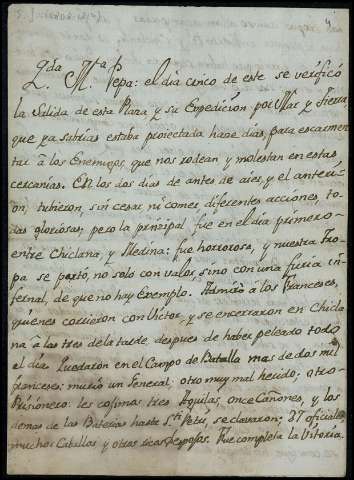 Qda. Ma. Pepa: el dia cinco de este se verificó
la Salida de esta Plaza y su Expedicion por Mar y Tierra,
que ya sabrias estaba proiectada hace dias, para escarmen-
tar à los Enemigos, que nos rodean y molestan en estas
cercanias. En los dos dias de antes de aier, y el anteri-
or, tubieron, sin cesar ni comer diferentes acciones, to-
das gloriosas; pero la principal fue en el dia primero
entre Chiclana, y Medina: fue horrorosa, y nuestra Tro-
pa se portó, no solo con valor, sino con una furia in-
fernal, de que no hay Exemplo. à los Franceses,
quienes corrieron con Victor, y se encerraron en Chicla
na à las tres de la tarde, despues de haber peleado todo
el dia. Quedaron en el Campo de Batalla mas de dos mil
franceses: murió un General; otro muy mal herido; otro
Prisionero: les cojimos tres Aguilas, once Cañones, y los
demas de las Baterias hasta Sti Petri, se clavaron; 37 oficiales,
muchos Caballos y otros ricos despojos. Fue completa la Vitoria.